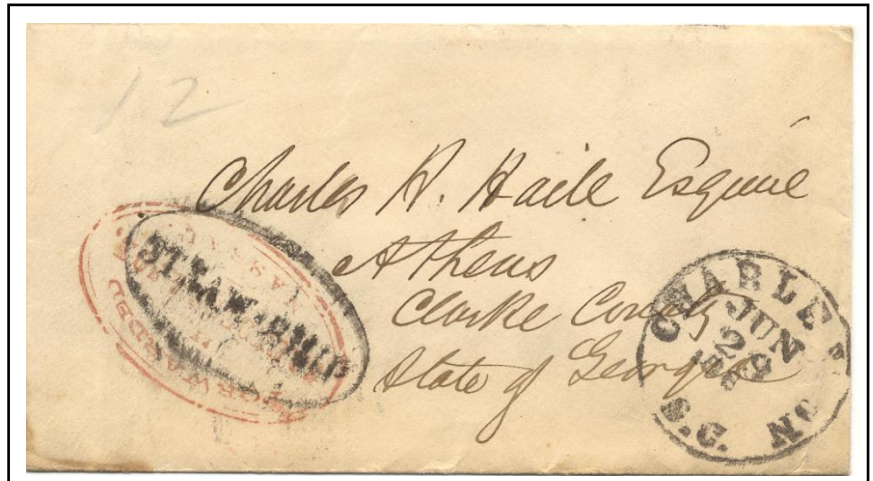 12
Charles H. Haile Esquire
Athens
Clarke County
State of Georgia
STEAM-SHIP
FORWARDED
NASSAU
CHARLESTON
JUN
29
S.C.